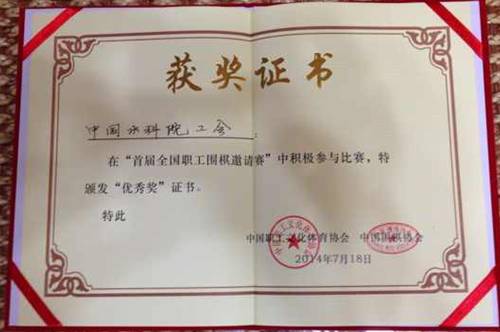 获奖证书
中国水科院工会:
在“首届全国职工围棋邀请赛”中积极参与比赛，特
颁发“优秀奖”证书。
特此
中国职工文化体育协会 中国围棋协会
2014年7月18日